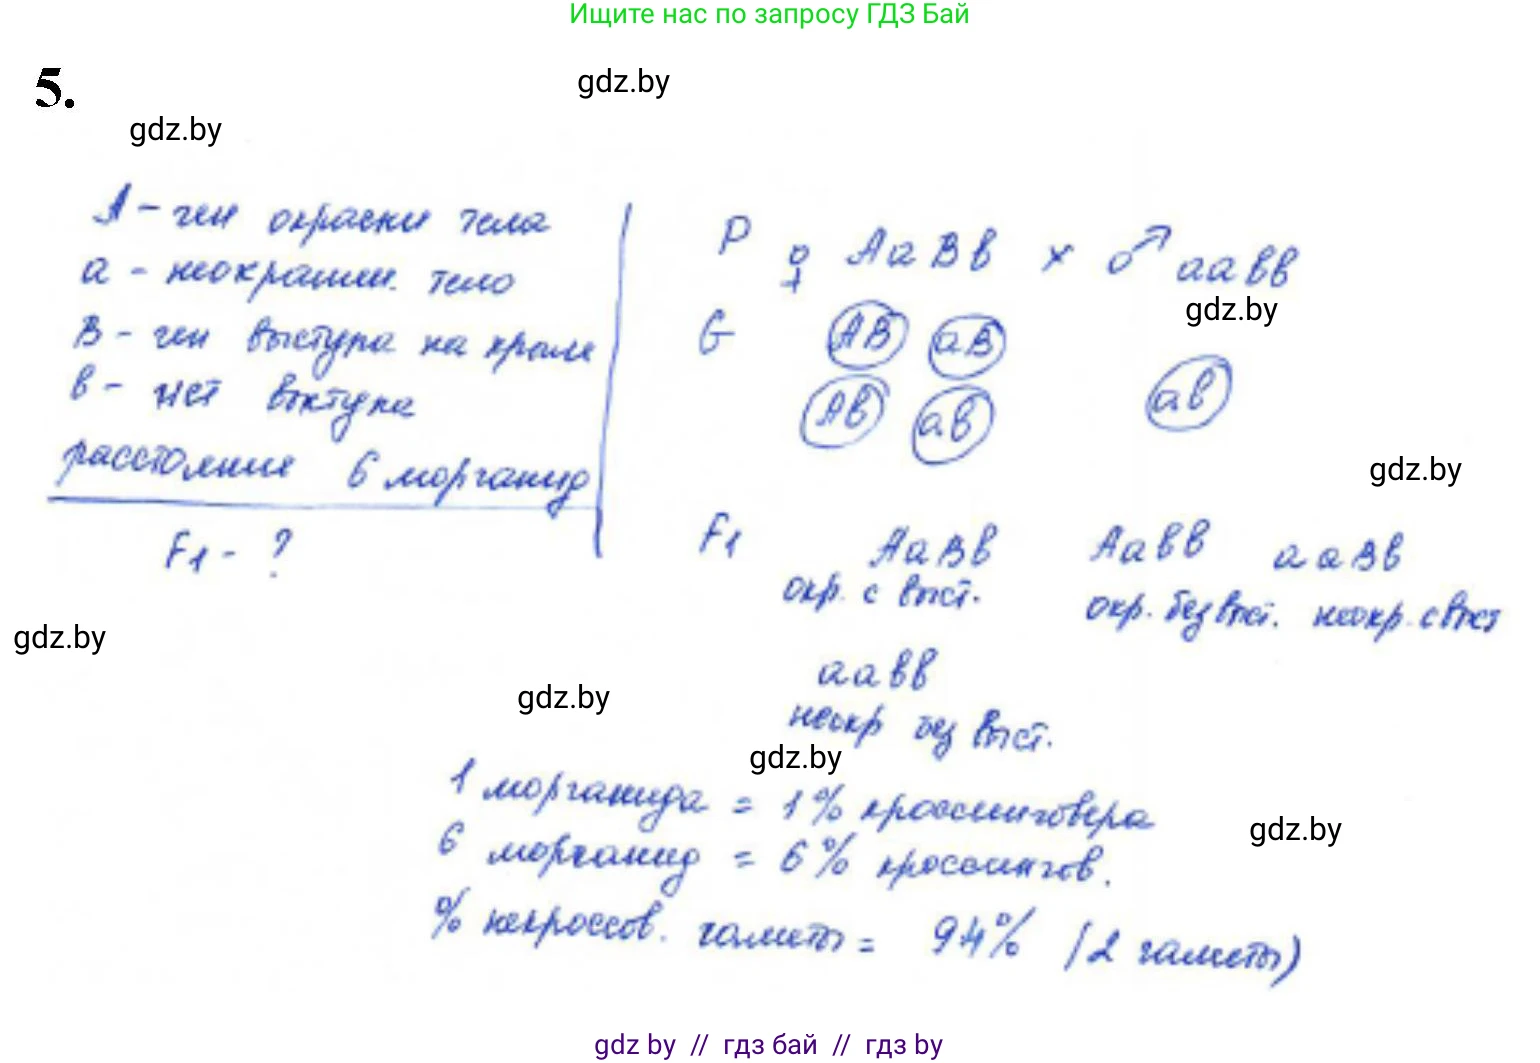 Ищите нас по запросу ГДЗ Бай
5.
gdz.by
gdz.by
А - ген окраски тела
а - неокрашен. тело
В - ген выступа на крыле
в - нет выступа
расстояние 6 морганид
F1 - ?
P ♀ АаВв × ♂ аавв
gdz.by
G АВ аВ
Ав ав ав
gdz.by
F1 АаВв Аавв ааВв
окр. с выст. окр. без выст. неокр. с выст
gdz.by
аавв
gdz.by
неокр без выст.
gdz.by
1 морганида = 1% кроссинговера
gdz.by
6 морганид = 6% кроссингов.
% некроссов. гаметы = 94% (2 гаметы)
gdz.by // гдз бай // гдз by